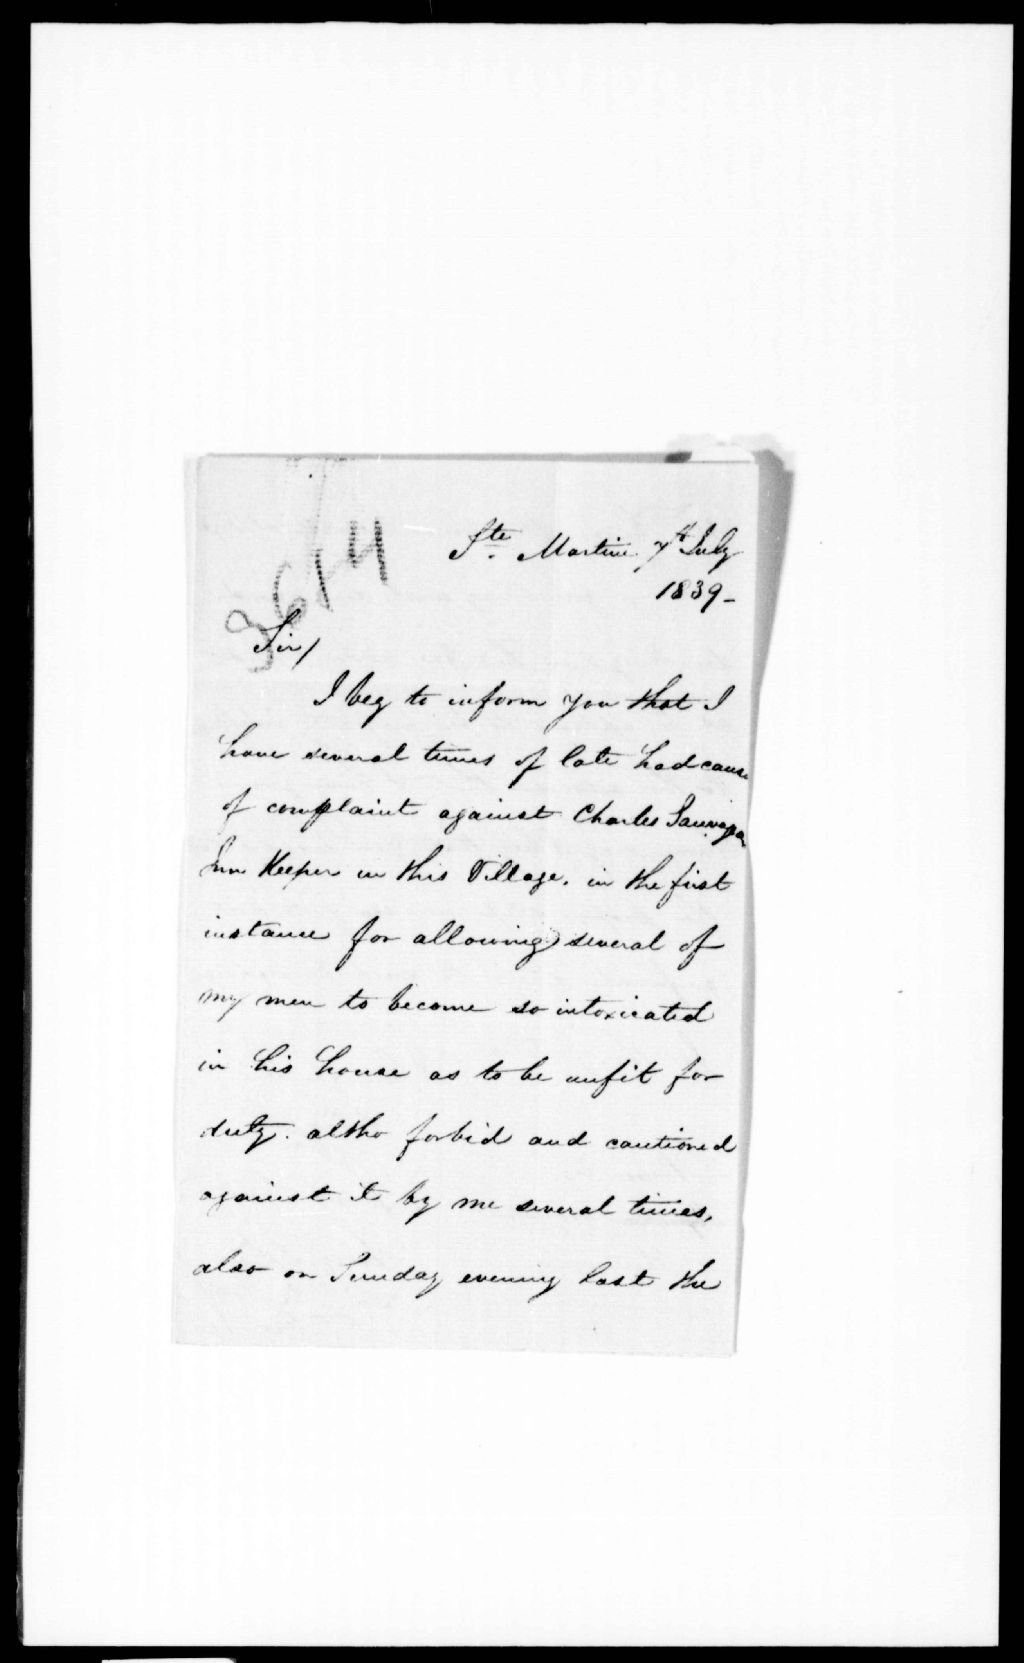 3614
Ste. Martine 7th July
1839 -
Sir/
I beg to inform you that I
have several times of late had cause
of complaint against Charles
Inn Keeper in this Village. in the first
instance for allowing several of
my men to become so intoxicated
in his house as to be unfit for
duty. altho forbid and cautioned
against it by me several times,
also on Sunday evening last the